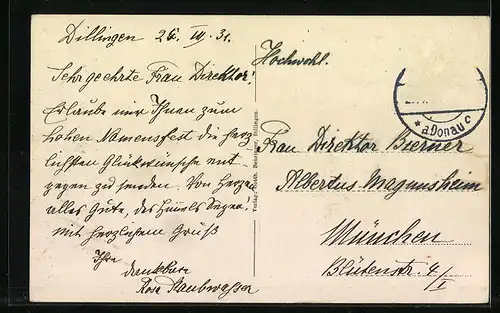 Dillingen 26. VII. 31.
Sehrgeehrte Frau Direktor!
Erlaube mir Ihnen zum
hohen Namensfest die herz
lichsten Glückwünsche ent-
gegen zu senden. Von Herzen
alles Gute, des Himmels Segen!
Mit herzlichem Gruß
Ihre
dankbare
Rosa Staubwasser
Dillingen.
Hochwohl.
Frau Direktor Bierner
Albertus Magnusheim
München
Blütenstr. 4/I
* a.Donau c